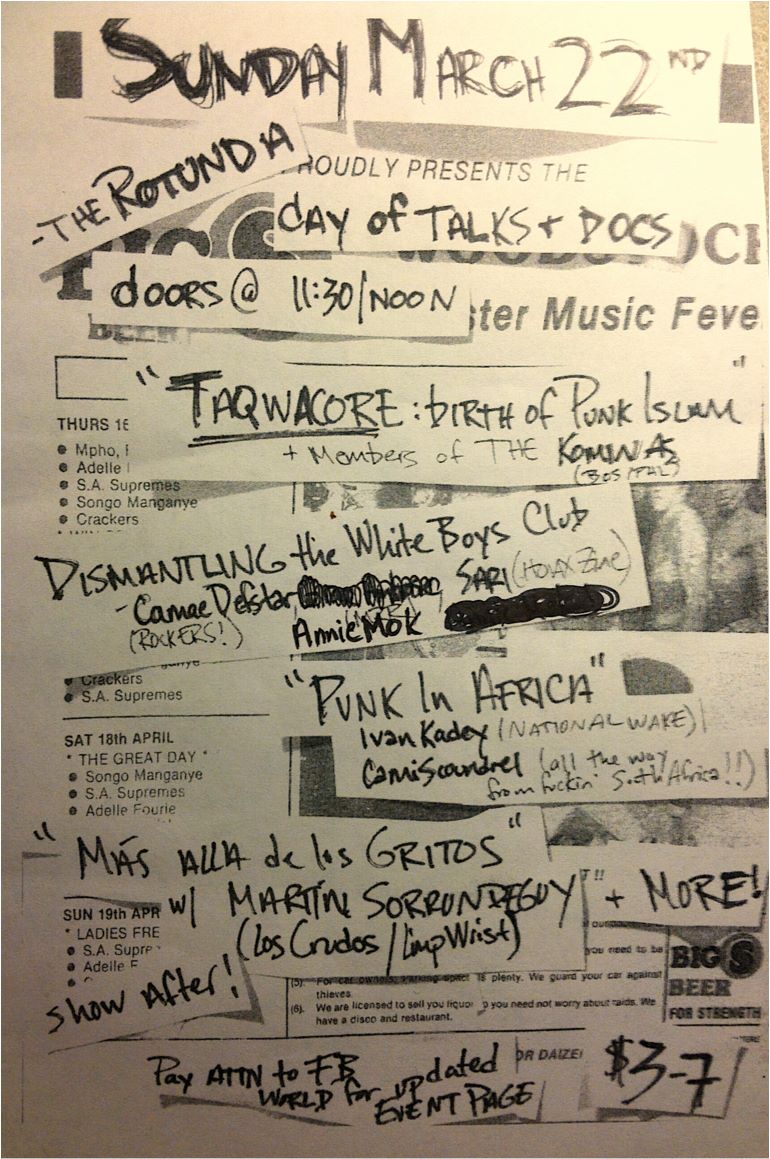 SUNDAY MARCH 22ND
-THE ROTUNDA
ROUDLY PRESENTS THE
dAY of TALKS + DOCS
doors @ 11:30/NOON
ster Music Feve
BEER
"TAQWACORE: birth of Punk Islam"
+ Members of THE KOMINAS
(BOS/PHL)
THURS 16
Mpho,
Adelle
S.A. Supremes
Songo Manganye
Crackers
DISMANTLING the White Boys Club
- Camae Defstar,
SARI (HOAX Zine)
(ROCKERS!)
Annie Mok
Crackers
S.A. Supremes
"PUNK In AFRICA"
Ivan Kadey (NATIONAL WAKE)
Cami Scoundrel (all the way
from fuckin' South Africa!!)
SAT 18th APRIL
* THE GREAT DAY *
Songo Manganye
S.A. Supremes
Adelle Fourie
"MÁS ALLA de los GRITOS"
w/ MARTÍN SORRONDEGUY
(Los Crudos/Limp Wrist)
+ MORE!
SUN 19th APR
* LADIES FRE
S.A. Supre
Adelle F
show After!
you need to be
(5). For car owners, parking space is plenty. We guard your car against
thieves.
(6). We are licensed to sell you liquor you need not worry about raids. We
have a disco and restaurant.
BIG S
BEER
FOR STRENGTH
OR DAIZE!
Pay ATTN to FB
WORLD for updated
EVENT PAGE
$3-7